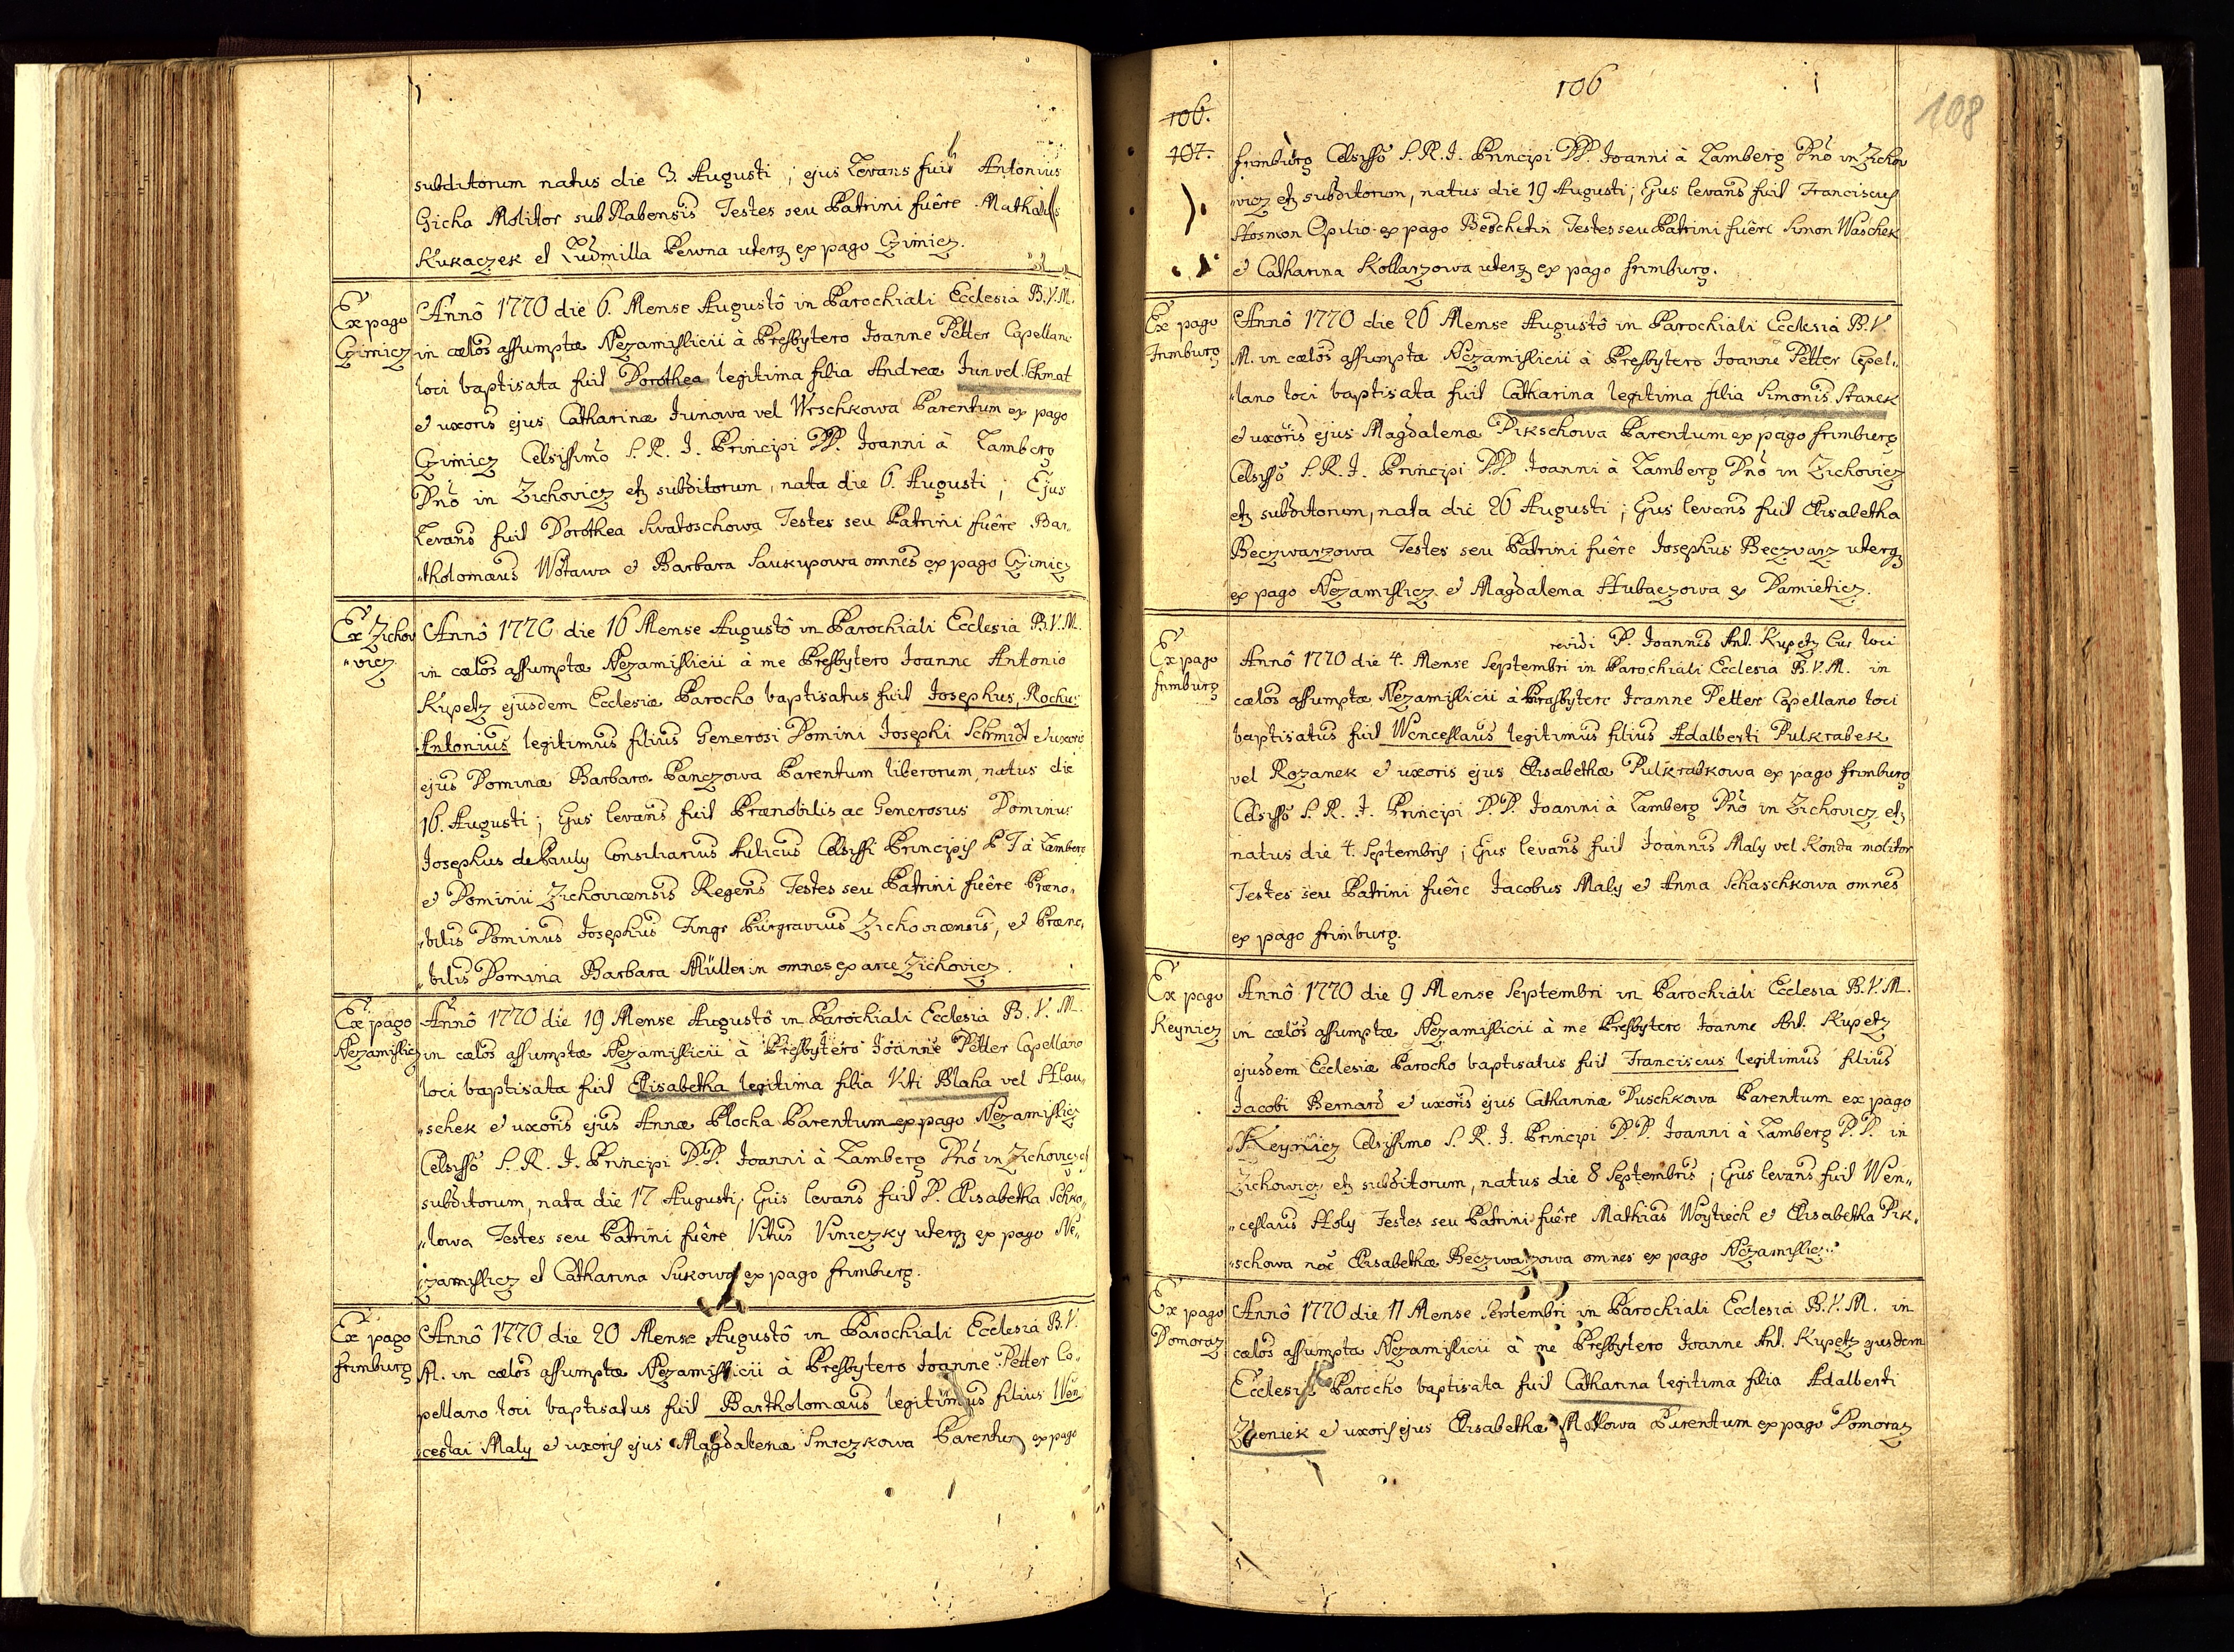 subditorum natus die 3. Augusti ; ejus Levans fuit Antonius
Gicha Molitor sub Rabensis Testes seu Patrini fuêre Mathaus
Kukaczek et Ludmilla Pewna uterq ex pago Czimicz.
Ex pago
Czimicz
Annô 1770 die 6. Mense Augustô in Parochiali Ecclesia B.V.M.
in cælos assumptæ Nezamislicii à Presbytero Joanne Petter Capellano
loci baptisata fuit Dorothea legitima filia Andreæ Jun vel Schmat
et uxoris ejus Catharinæ Junowa vel Wrschkowa Parentum ex pago
Czimicz Celsissimo S. R. I. Principi DD. Joanni à Lamberg
Dno in Zichovicz etz subditorum, nata die 6. Augusti ; Ejus
Levans fuit Dorothea Swatoschowa Testes seu Patrini fuêre Bar„
„tholomæus Wotawa et Barbara Saukupowa omnes ex pago Czimicz
Ex Zichov
„vicz
Annô 1770 die 16 Mense Augustô in Parochiali Ecclesia B.V.M.
in cælos assumptæ Nezamislicii à me Presbytero Joanne Antonio
Kupetz ejusdem Ecclesiæ Parocho baptisatus fuit Josephus, Rochus
Antonius legitimus filius Generosi Domini Josephi Schmidt et uxoris
ejus Dominæ Barbaræ Panczowa Parentum liberorum, natus die
16. Augusti ; Ejus levans fuit Prænobilis ac Generosus Dominus
Josephus de Pauly Consiliarius Aulicus Celsissi Principis P T à Lamberg
et Dominii Zichovicensis Regens Testes seu Patrini fuêre Præno„
„bilis Dominus Josephus Burgravius Zichovicensis, et Præno„
„bilis Domina Barbara Müllerin omnes ex arce Zichovicz.
Ex pago
Nezamislicz
Annô 1770 die 19 Mense Augustô in Parochiali Ecclesia B. V. M.
in cælos assumptæ Nezamislicii à Presbytero Joanne Petter Capellano
loci baptisata fuit Elisabetha legitima filia Viti Blaha vel
„schek et uxoris ejus Annæ Plocha Parentum ex pago Nezamislicz
Celsisso S. R. I. Principi D.D. Joanni à Lamberg Dno in Zichovicz et
subditorum, nata die 17 Augusti; Ejus levans fuit D. Elisabetha Scho„
„lowa Testes seu Patrini fuêre Vitus Viniczky uterq ex pago Ne„
„zamislicz et Catharina Sukowa ex pago frimburg.
Ex pago
frimburg
Annô 1770 die 20 Mense Augustô in Parochiali Ecclesia B.V.
M. in cælos assumptæ Nezamislicii à Presbytero Joanne Petter Ca„
pellano loci baptisatus fuit Bartholomæus legitimus filius Wen
ceslai Maly et uxoris ejus Magdalenæ Smrczkowa Parentum ex pago
106
108
106.
107.
frimburg Celsisso S. R. I. Principi DD. Joanni à Lamberg Dno in Zichov
„vicz etz subditorum, natus die 19 Augusti; Ejus levans fuit Franciscus
Opilio ex pago Beschetin Testes seu Patrini fuêre Simon Waschek
et Catharina Kollarzowa uterq ex pago frimburg.
Ex pago
Frimburg
Annô 1770 die 26 Mense Augustô in Parochiali Ecclesia B.V.
M. in cælos assumptæ Nezamislicii à Presbytero Joanne Petter Capel„
„lano loci baptisata fuit Catharina legitima filia Simonis Stanek
et uxoris ejus Magdalenæ Pikschowa Parentum ex pago frimburg
Celsisso S. R. I. Principi DD. Joanni à Lamberg Dno in Zichovicz
etz subditorum, nata die 26 Augusti ; Ejus levans fuit Elisabetha
Beczwarzowa Testes seu Patrini fuêre Josephus Beczvarz uterq
ex pago Nezamislicz et Magdalena Hubaczowa ex Damieticz.
revidi P. Joannes Ant. Kupetz Cur loci
Ex pago
frimburg
Annô 1770 die 4. Mense Septembri in Parochiali Ecclesia B.V.M. in
cælos assumptæ Nezamislicii à Presbytero Joanne Petter Capellano loci
baptisatus fuit Wenceslaus legitimus filius Adalberti Pulkrabek
vel Rozanek et uxoris ejus Elisabethæ Pulkrabkowa ex pago frimburg
Celsisso S. R. I. Principi D.D. Joanni à Lamberg Dno in Zichovicz etz
natus die 4. Septembris ; Ejus levans fuit Joannes Maly vel Konda molitor
Testes seu Patrini fuêre Jacobus Maly et Anna Schaschkowa omnes
ex pago frimburg.
Ex pago
Keynicz
Annô 1770 die 9 Mense Septembri in Parochiali Ecclesia B.V.M.
in cælos assumptæ Nezamislicii à me Presbytero Joanne Ant. Kupetz
ejusdem Ecclesiæ Parocho baptisatus fuit Franciscus legitimus filius
Jacobi Bernard et uxoris ejus Catharinæ Duschkowa Parentum ex pago
Keynicz Celsissimo S. R. I. Principi D.D. Joanni à Lamberg D.D. in
Zichowicz etz subditorum, natus die 8 Septembris ; Ejus levans fuit Wen„
„ceslaus Holy Testes seu Patrini fuêre Mathias Woytiech et Elisabetha Pik„
„schowa noe Elisabethæ Beczwarzowa omnes ex pago Nezamislicz.
Ex pago
Domoraz
Annô 1770 die 11 Mense Septembri in Parochiali Ecclesia B.V.M. in
cælos assumpta Nezamislicii à me Presbytero Joanne Ant. Kupetz ejusdem
Ecclesiæ Parocho baptisata fuit Catharina legitima filia Adalberti
et uxoris ejus Elisabethæ Parentum ex pago Domoraz